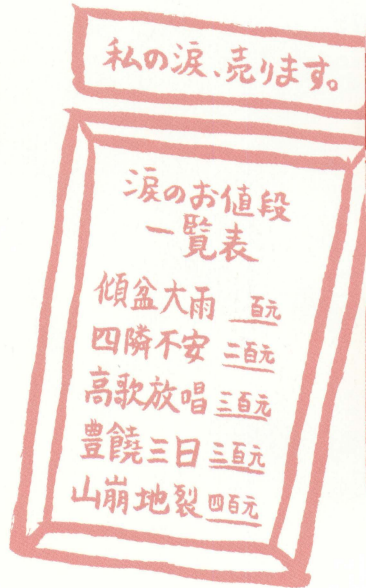 私の涙、売ります。
涙のお値段
一覧表
傾盆大雨 百元
四隣不安 二百元
高歌放唱 三百元
豊饒三日 三百元
山崩地裂 四百元